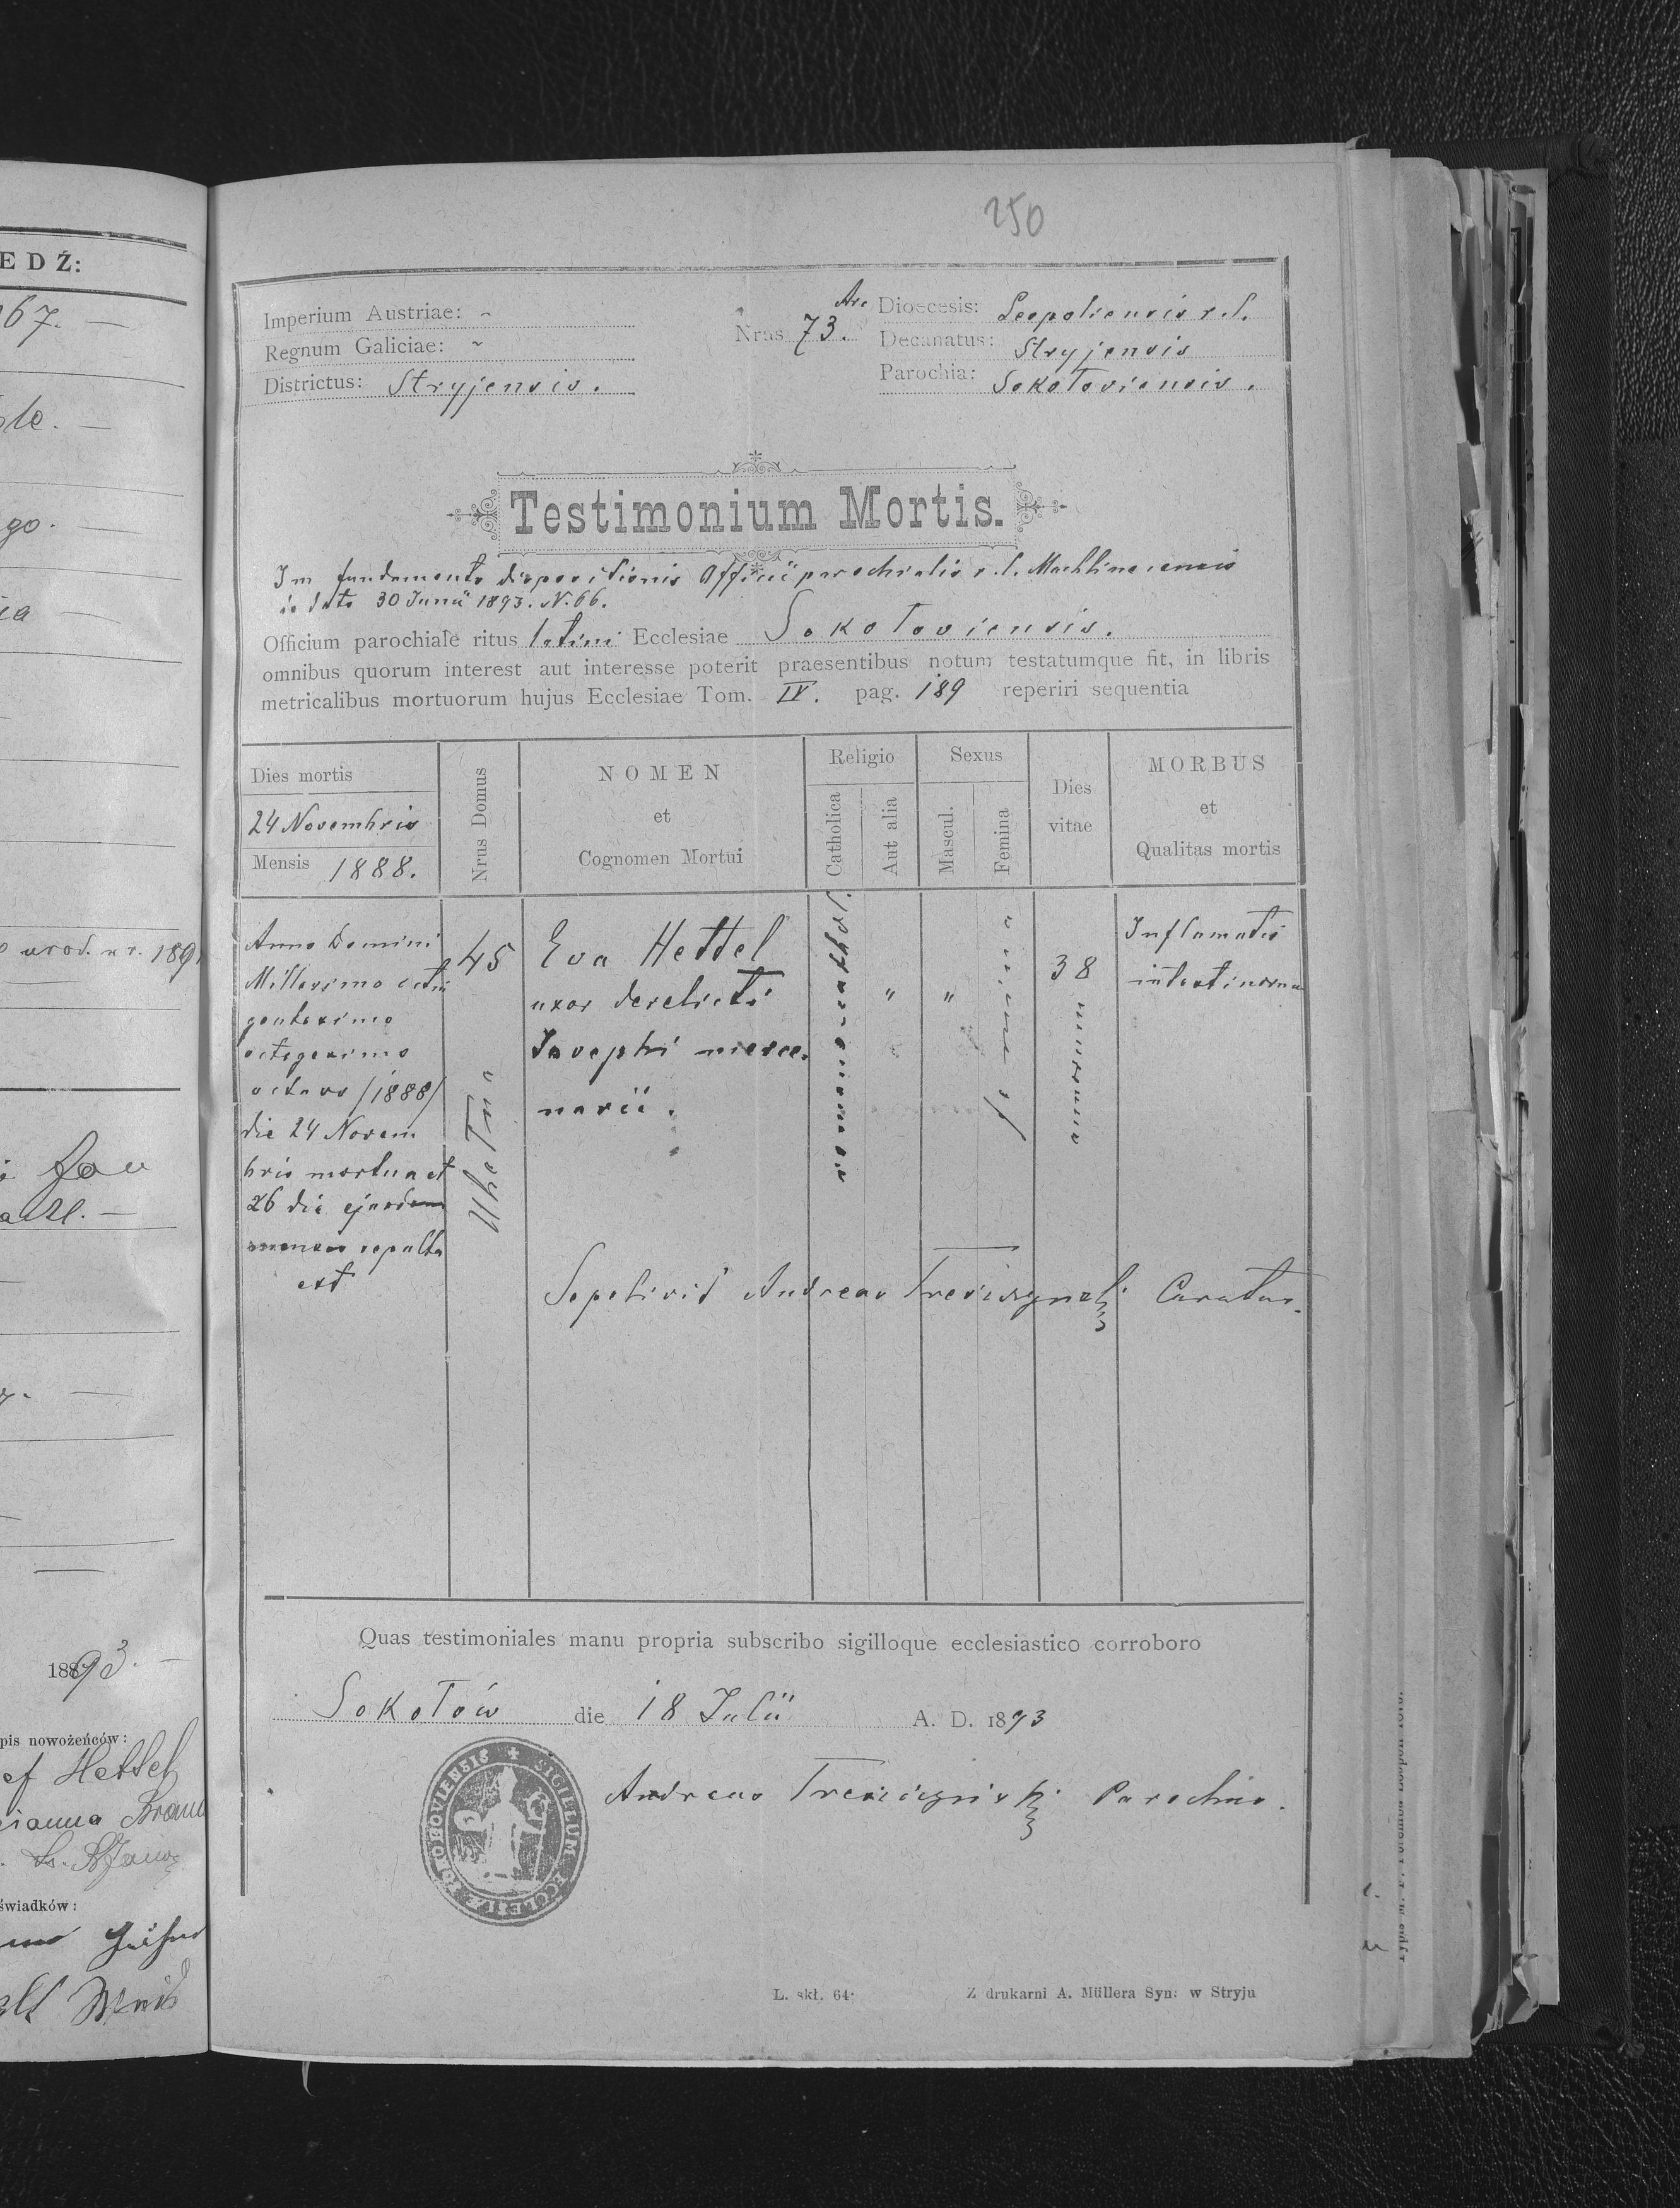 EDŹ:
67. —
go.
urod. w r. 189
1893. —
pis nowożeńców:
ef Hettel
ianna Braun
świadków:
250
Imperium Austriae: ~
Regnum Galiciae: ~
Districtus: Stryjensis.
Nrus 73.
Arc Dioecesis: Leopoliensis r. l.
Decanatus: Stryjensis
Parochia: Sokołoviensis.
Testimonium Mortis.
In fundamento dispositionis Officii parochialis r. l. Machliniecensis
de dato 30 Junii 1893. N. 66.
Officium parochiale ritus latini Ecclesiae Sokołoviensis.
omnibus quorum interest aut interesse poterit praesentibus notum testatumque fit, in libris
metricalibus mortuorum hujus Ecclesiae Tom. IV. pag. 189 reperiri sequentia
Dies mortis
24 Novembris
Mensis 1888.
Nrus Domus
NOMEN
et
Cognomen Mortui
Religio
Catholica
Aut alia
Sexus
Mascul.
Femina
Dies
vitae
MORBUS
et
Qualitas mortis
Anno Domini
Millesimo octin
gentesimo
octogesimo
octavo /1888/
die 24 Novem
bris mortua et
26 die ejusdem
mensis sepulta
est
45
Uhełna
Eva Hettel
uxor derelicti
Josephi merce-
narii.
romano-cathol.
"
"
femina
38
annorum
Inflamatio
intestinorum
Sepelivit Andreas Trzciszyński Curatus.
Quas testimoniales manu propria subscribo sigilloque ecclesiastico corroboro
Sokołów die 18 Julii A. D. 1893
Andreas Trzciszyński Parochus.
SIGILLUM ECCLESIAE SOKOLOVIENSIS
L. skł. 64.
Z drukarni A. Müllera Syn. w Stryju